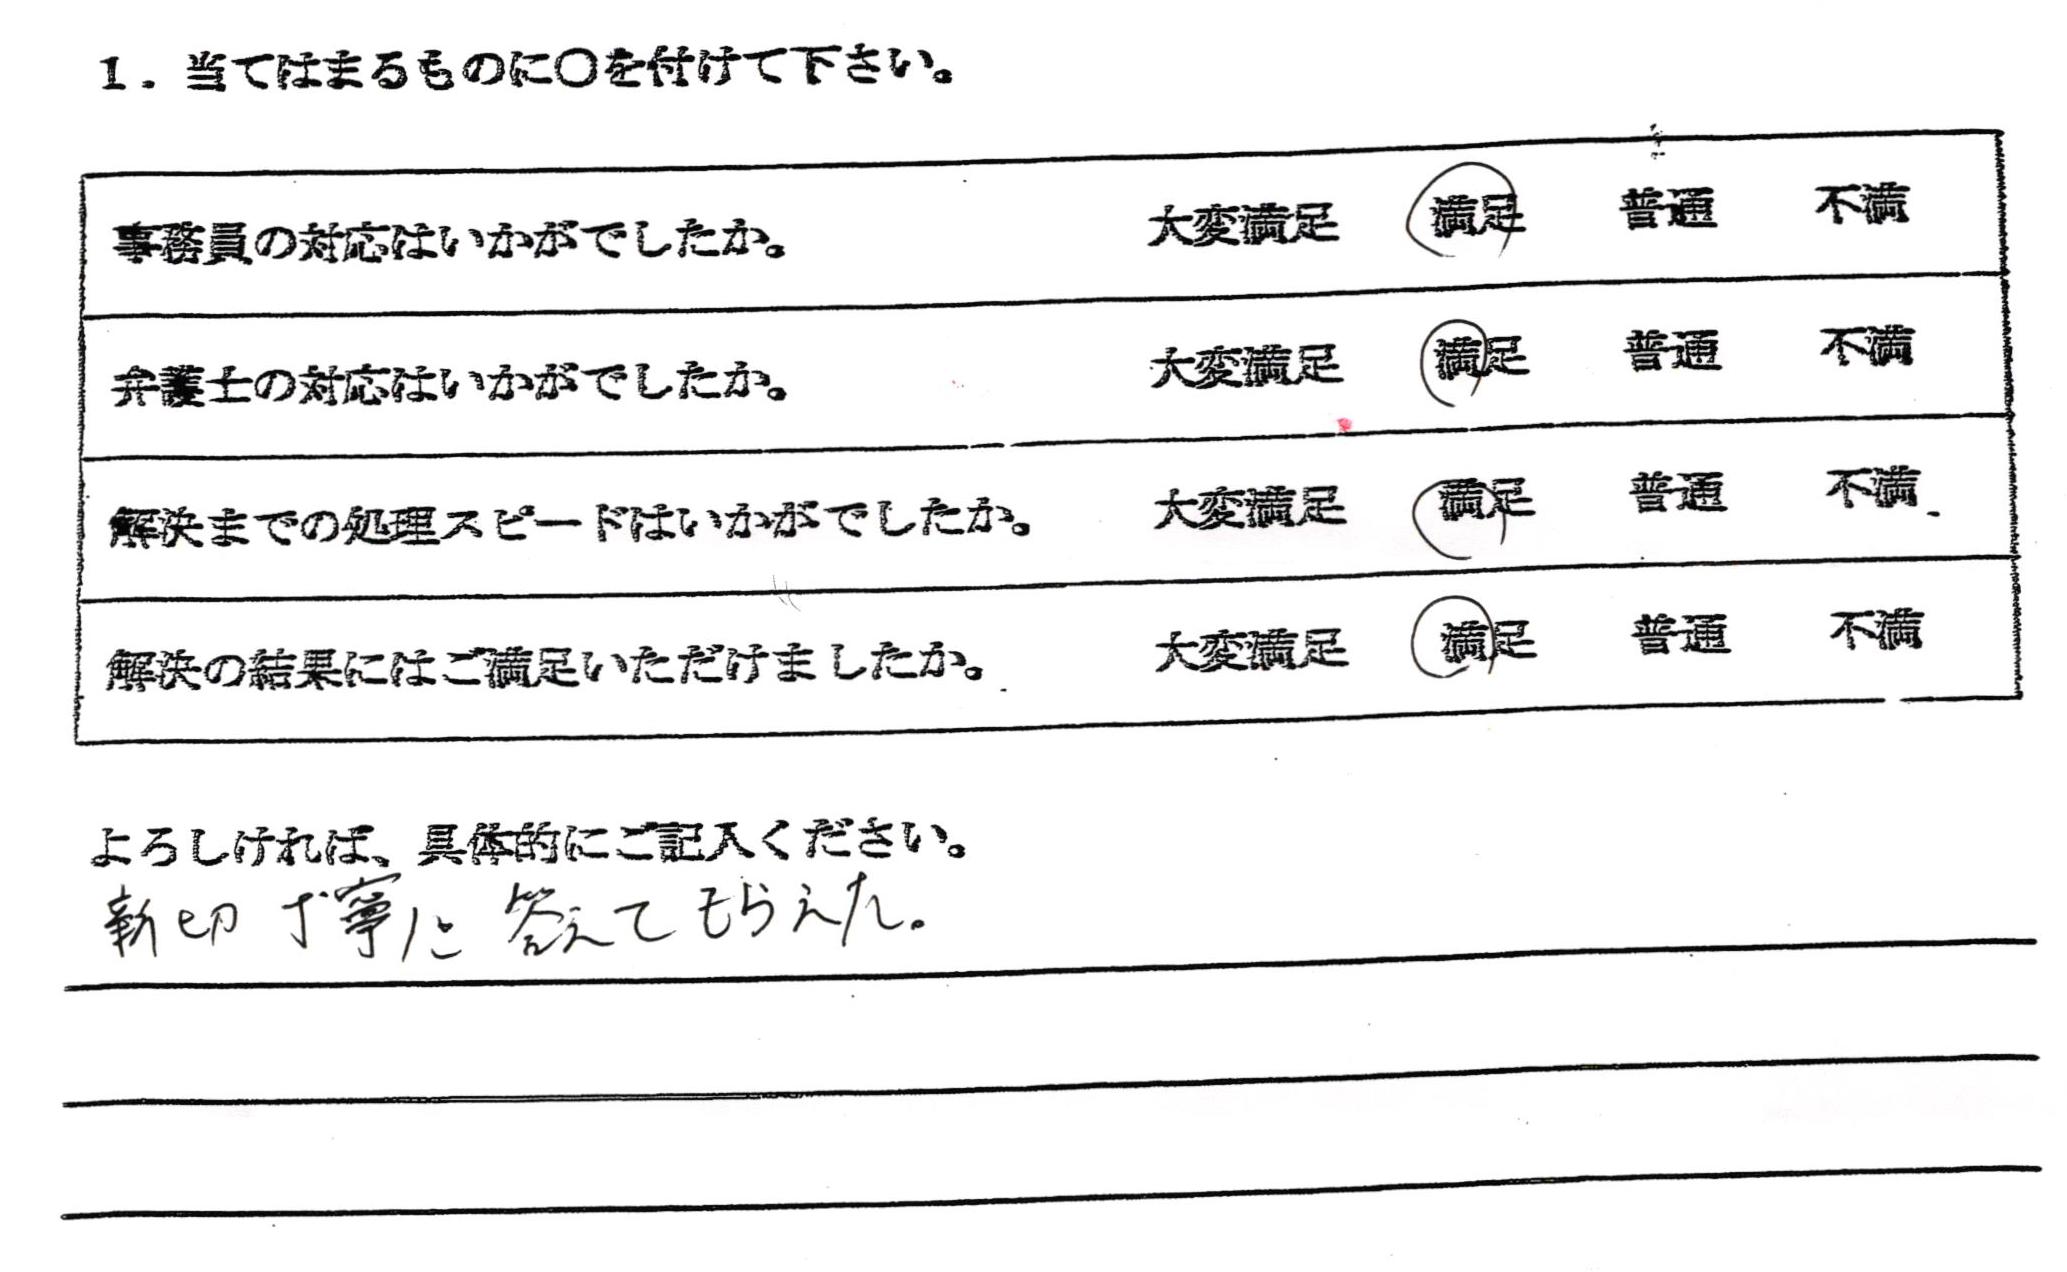 1. 当てはまるものに〇を付けて下さい。
事務員の対応はいかがでしたか。 大変満足 満足 普通 不満
弁護士の対応はいかがでしたか。 大変満足 満足 普通 不満
解決までの処理スピードはいかがでしたか。 大変満足 満足 普通 不満
解決の結果にはご満足いただけましたか。 大変満足 満足 普通 不満
よろしければ、具体的にご記入ください。
新切丁寧に答えてもらえた。